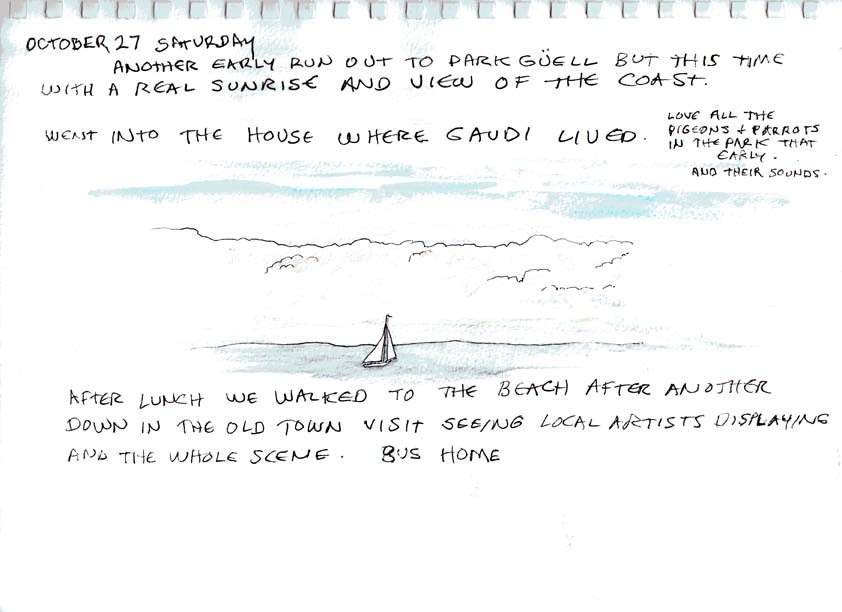 OCTOBER 27 SATURDAY
ANOTHER EARLY RUN OUT TO PARK GÜELL BUT THIS TIME
WITH A REAL SUNRISE AND VIEW OF THE COAST.
WENT INTO THE HOUSE WHERE GAUDI LIVED.
LOVE ALL THE
PIGEONS + PARROTS
IN THE PARK THAT
EARLY.
AND THEIR SOUNDS.
AFTER LUNCH WE WALKED TO THE BEACH AFTER ANOTHER
DOWN IN THE OLD TOWN VISIT SEEING LOCAL ARTISTS DISPLAYING
AND THE WHOLE SCENE. BUS HOME